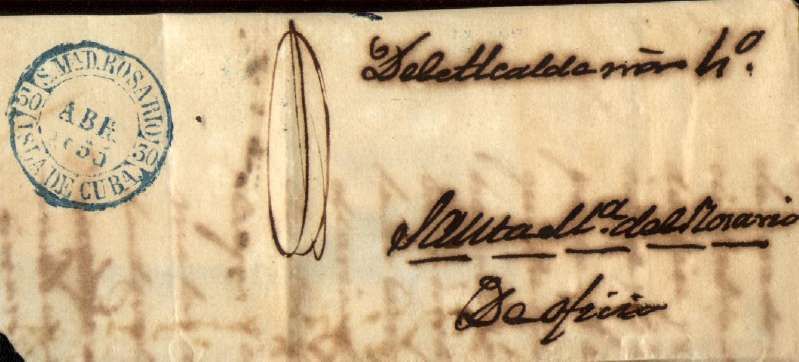 S. Mª D. ROSARIO
30
ABR
1855
30
ISLA DE CUBA.
Del Alcalde
Santa Mª. del Rosario
De oficio